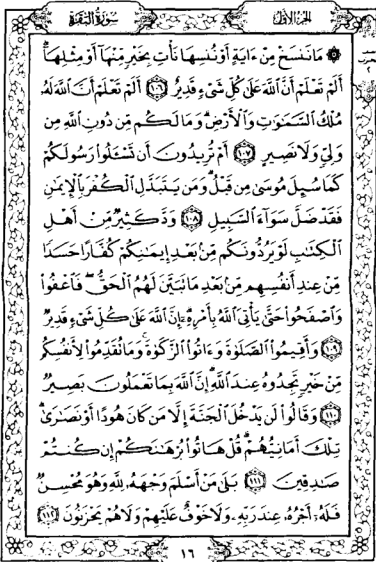 سورة البقرة
الجزء الأول
۞ مَا نَنسَخْ مِنْ ءَايَةٍ أَوْ نُنسِهَا نَأْتِ بِخَيْرٍ مِّنْهَآ أَوْ مِثْلِهَآ
أَلَمْ تَعْلَمْ أَنَّ ٱللَّهَ عَلَىٰ كُلِّ شَىْءٍ قَدِيرٌ ١٠٦ أَلَمْ تَعْلَمْ أَنَّ ٱللَّهَ لَهُۥ
مُلْكُ ٱلسَّمَٰوَٰتِ وَٱلْأَرْضِ وَمَا لَكُم مِّن دُونِ ٱللَّهِ مِن
وَلِىٍّ وَلَا نَصِيرٍ ١٠٧ أَمْ تُرِيدُونَ أَن تَسْـَٔلُوا۟ رَسُولَكُمْ
كَمَا سُئِلَ مُوسَىٰ مِن قَبْلُ وَمَن يَتَبَدَّلِ ٱلْكُفْرَ بِٱلْإِيمَٰنِ
فَقَدْ ضَلَّ سَوَآءَ ٱلسَّبِيلِ ١٠٨ وَدَّ كَثِيرٌ مِّنْ أَهْلِ
ٱلْكِتَٰبِ لَوْ يَرُدُّونَكُم مِّنۢ بَعْدِ إِيمَٰنِكُمْ كُفَّارًا حَسَدًا
مِّنْ عِندِ أَنفُسِهِم مِّنۢ بَعْدِ مَا تَبَيَّنَ لَهُمُ ٱلْحَقُّ فَٱعْفُوا۟
وَٱصْفَحُوا۟ حَتَّىٰ يَأْتِىَ ٱللَّهُ بِأَمْرِهِۦٓ إِنَّ ٱللَّهَ عَلَىٰ كُلِّ شَىْءٍ قَدِيرٌ
١٠٩ وَأَقِيمُوا۟ ٱلصَّلَوٰةَ وَءَاتُوا۟ ٱلزَّكَوٰةَ وَمَا تُقَدِّمُوا۟ لِأَنفُسِكُم
مِّنْ خَيْرٍ تَجِدُوهُ عِندَ ٱللَّهِ إِنَّ ٱللَّهَ بِمَا تَعْمَلُونَ بَصِيرٌ
١١٠ وَقَالُوا۟ لَن يَدْخُلَ ٱلْجَنَّةَ إِلَّا مَن كَانَ هُودًا أَوْ نَصَٰرَىٰ
تِلْكَ أَمَانِيُّهُمْ قُلْ هَاتُوا۟ بُرْهَٰنَكُمْ إِن كُنتُمْ
صَٰدِقِينَ ١١١ بَلَىٰ مَنْ أَسْلَمَ وَجْهَهُۥ لِلَّهِ وَهُوَ مُحْسِنٌ
فَلَهُۥٓ أَجْرُهُۥ عِندَ رَبِّهِۦ وَلَا خَوْفٌ عَلَيْهِمْ وَلَا هُمْ يَحْزَنُونَ ١١٢
١٦